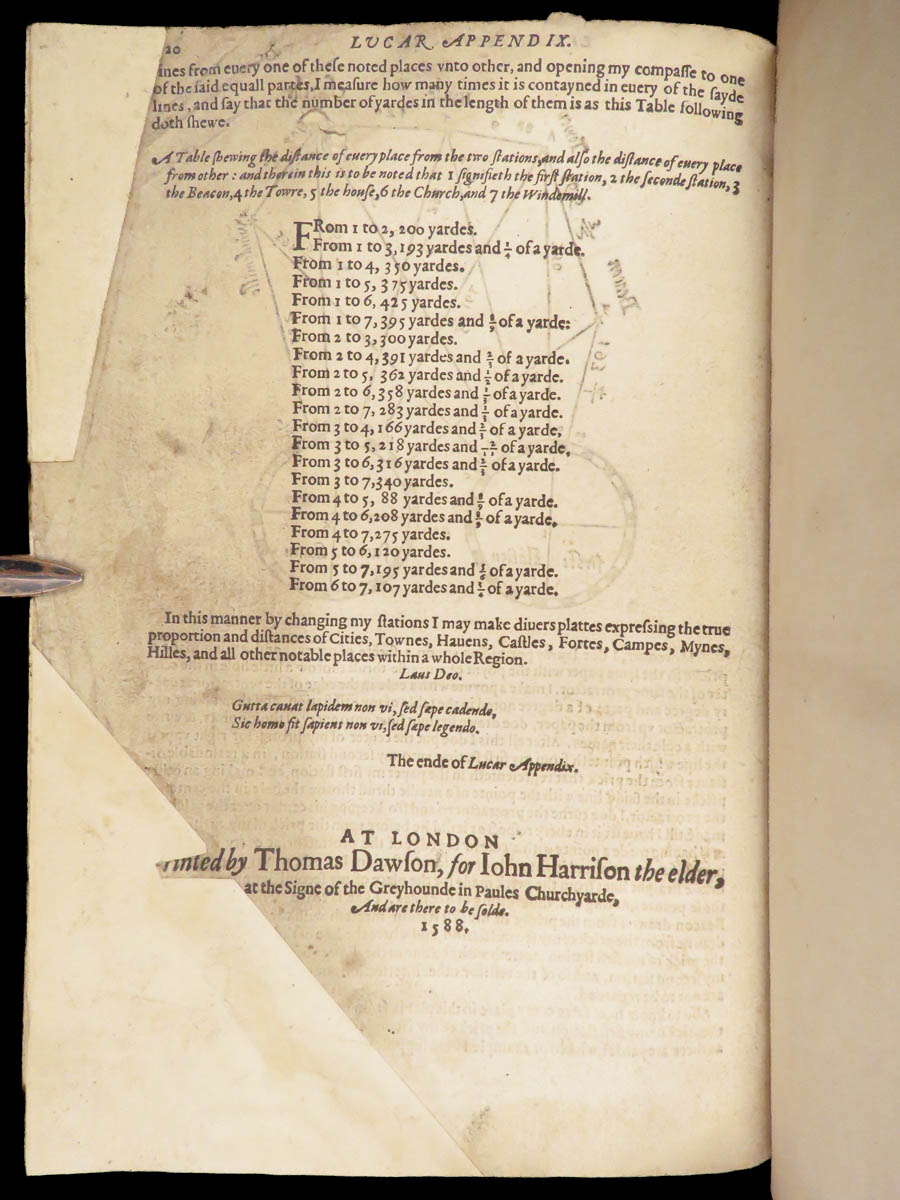 20 LVCAR APPENDIX.
ines from euery one of theſe noted places vnto other, and opening my compaſſe to one
of the ſaid equall partes, I meaſure how many times it is contayned in euery of the ſayde
lines, and ſay that the number of yardes in the length of them is as this Table following
doth ſhewe.
A Table ſhewing the diſtance of euery place from the two ſtations, and alſo the diſtance of euery place
from other: and therein this is to be noted that 1 ſignifieth the firſt ſtation, 2 the ſeconde ſtation, 3
the Beacon, 4 the Towre, 5 the houſe, 6 the Church, and 7 the Windemill.
FRom 1 to 2, 200 yardes.
From 1 to 3, 193 yardes and 1/4 of a yarde.
From 1 to 4, 350 yardes.
From 1 to 5, 375 yardes.
From 1 to 6, 425 yardes.
From 1 to 7, 395 yardes and of a yarde:
From 2 to 3, 300 yardes.
From 2 to 4, 391 yardes and 2/3 of a yarde.
From 2 to 5, 362 yardes and 1/2 of a yarde.
From 2 to 6, 358 yardes and 1/3 of a yarde.
From 2 to 7, 283 yardes and 1/3 of a yarde.
From 3 to 4, 166 yardes and 2/3 of a yarde,
From 3 to 5, 218 yardes and of a yarde,
From 3 to 6, 316 yardes and 2/3 of a yarde.
From 3 to 7, 340 yardes.
From 4 to 5, 88 yardes and of a yarde.
From 4 to 6, 208 yardes and of a yarde,
From 4 to 7, 275 yardes.
From 5 to 6, 120 yardes.
From 5 to 7, 195 yardes and of a yarde.
From 6 to 7, 107 yardes and 1/4 of a yarde.
In this manner by changing my ſtations I may make diuers plattes expreſsing the true
proportion and diſtances of Cities, Townes, Hauens, Caſtles, Fortes, Campes, Mynes,
Hilles, and all other notable places within a whole Region.
Laus Deo.
Gutta cauat lapidem non vi, ſed ſæpe cadendo,
Sic homo fit ſapient non vi, ſed ſæpe legendo.
The ende of Lucar Appendix.
AT LONDON
rinted by Thomas Dawſon, for Iohn Harriſon the elder,
at the Signe of the Greyhounde in Paules Churchyarde,
And are there to be ſolde.
1588.